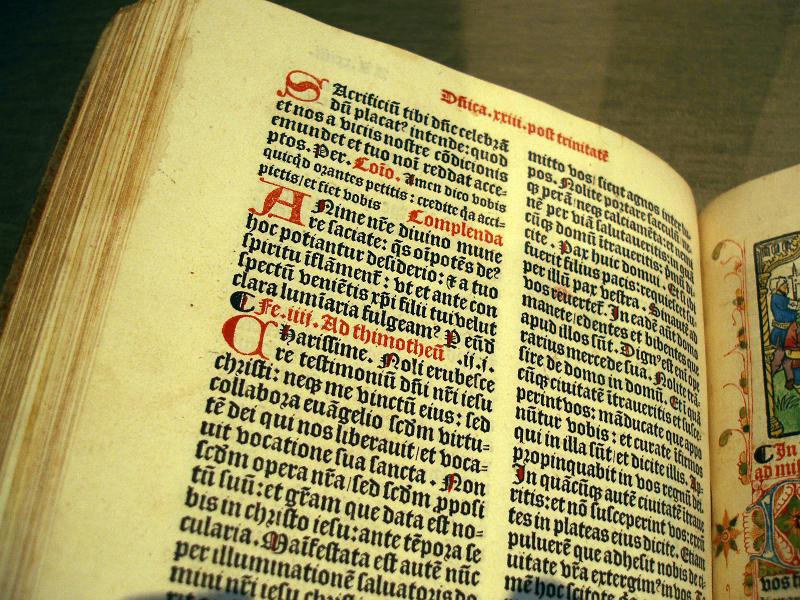 Dñica.xxiii.post trinitatẽ
SAcrificiũ tibi dñe celebrã
dũ placat? intende: quod
et nos a viciis nostre cõdicionis
emundet et tuo noĩ reddat acce-
ptos. Per. Coĩo. Amen dico vobis
quicqd orantes petitis: credite qa acci-
pietis/et fiet vobis Complenda
ANime nr̃e diuino mune
re saciate: qs oĩpotẽs de?
hoc potiantur desiderio: ⁊ a tuo
spiritu ĩflãment̃: vt et ante con
spectũ veniẽtis xp̃i filii tui velut
clara lumĩaria fulgeam? P eũd
Fe.iiii. Ad thimotheũ .ii.i.
CHarissime. Noli erubesce
re testimoniũ dñi nr̃i iesu
christi: neqꝫ me vinctũ eius: sed
collabora euãgelio scd̃m virtu-
tẽ dei qui nos liberauit/et voca-
uit vocatione sua sancta. Non
scd̃m opera nr̃a/sed scd̃m ꝓposi
tũ suũ: et gr̃am que data est no-
bis in christo iesu: ante tẽpora se
cularia. Maĩfestata est autẽ nũc
per illuminationẽ saluatoris do
mini nr̃i iesu christi
mitto vos/sicut agnos inter lu-
pos. Nolite portare sacculũ/ne-
qꝫ perã/neqꝫ calciamẽta: et nemi
nẽ per viã salutaueritis: in quã
cũqꝫ domũ ĩtraueritis: pm̃ũ di-
cite. Pax huic domui. Et si ibi
fuerit filius pacis: requiescet su-
per illũ pax vestra. Sinautẽ ad
vos reuertet̃. In eadẽ aũt domo
manete/edentes et bibentes que
apud illos sũt. Dign? est eni ope
rarius mercede sua. Nolite trã-
sire de domo in domũ. Et ĩ quã
cũqꝫ ciuitatẽ ĩtraueritis et susce-
perint vos: mãducate que appo
nũtur vobis: et curate ĩfirmos
qui in illa sũt/et dicite illis. Ap-
propinquabit in vos regnũ dei.
In quãcũqꝫ autẽ ciuitatẽ ĩtraue
ritis: et nõ susceperint vos: exeũ
tes in plateas eius dicite. Etiam
puluerẽ que adhesit nobis de ci-
uitate vr̃a extergim? in vos. T
mẽ hoc scitote
In
ad mi
vos